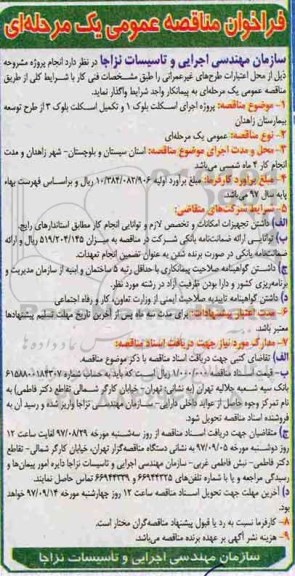 فراخوان مناقصه عمومی یک مرحله‌ای
سازمان مهندسی اجرایی و تاسیسات نزاجا در نظر دارد انجام پروژه مشروحه
ذیل از محل اعتبارات طرح‌های غیرعمرانی را طبق مشخصات فنی کار با شرایط کلی از طریق
مناقصه عمومی یک مرحله‌ای به پیمانکار واجد شرایط واگذار نماید.
۱- موضوع مناقصه: پروژه اجرای اسکلت بلوک ۱ و تکمیل اسکلت بلوک ۳ از طرح توسعه
بیمارستان زاهدان
۲- نوع مناقصه: عمومی یک مرحله‌ای
۳- محل و مدت اجرای موضوع مناقصه: استان سیستان و بلوچستان- شهر زاهدان و مدت
انجام کار ۴ ماه شمسی می‌باشد.
۴- مبلغ برآورد کارفرما: مبلغ برآورد اولیه ۱۰/۳۸۴/۰۸۲/۹۰۶ ریال و براساس فهرست بهاء
پایه سال ۹۷ می‌باشد.
۵- شرایط شرکت‌های متقاضی:
الف) داشتن تجهیزات امکانات و تخصص لازم و توانایی انجام کار مطابق استانداردهای رایج.
ب) توانایی ارائه ضمانت‌نامه بانکی شرکت در مناقصه به میزان ۵۱۹/۲۰۴/۱۴۵ ریال و ارائه
ضمانت‌نامه بانکی در صورت برنده شدن به عنوان تضمین انجام تعهدات.
ج) داشتن گواهینامه صلاحیت پیمانکاری با حداقل رتبه ۵ ساختمان و ابنیه از سازمان مدیریت و
برنامه‌ریزی کشور و دارا بودن ظرفیت آزاد در رشته مورد نظر.
د) داشتن گواهینامه تاییدیه صلاحیت ایمنی از وزارت تعاون، کار و رفاه اجتماعی
۶- مدت اعتبار پیشنهادات: برای مدت سه ماه پس از آخرین تاریخ مهلت تسلیم پیشنهادها
معتبر باشد.
۷- مدارک مورد نیاز جهت دریافت اسناد مناقصه:
الف) تقاضای کتبی جهت دریافت اسناد مناقصه با ذکر موضوع مناقصه.
ب- قیمت اسناد مناقصه ۱/۰۰۰/۰۰۰ ریال است که باید به حساب شماره
بانک سپه شعبه جلالیه تهران (به نشانی: تهران- خیابان کارگر شمالی تقاطع دکتر فاطمی) به
نام تمرکز وجوه حاصل از عواید داخلی دارایی- سازمان مهندسی نزاجا واریز شده و رسید آن به
فروشنده اسناد مناقصه تحویل شود.
ج) متقاضیان جهت دریافت اسناد مناقصه از روز سه‌شنبه مورخه ۹۷/۰۸/۲۹ لغایت ساعت ۱۲
روز دوشنبه مورخه ۹۷/۰۹/۰۵ به نشانی دستگاه مناقصه‌گزار تهران، خیابان کارگر شمالی- تقاطع
دکتر فاطمی- نبش فاطمی غربی- سازمان مهندسی اجرایی و تاسیسات نزاجا دایره امور پیمان‌ها و
رسیدگی مراجعه و یا با شماره تلفن‌های ۶۶۹۴۴۳۲۵ و ۶۶۹۴۴۳۴۹ تماس حاصل نمایند.
د) آخرین مهلت جهت تحویل اسناد مناقصه ساعت ۱۲ روز چهارشنبه مورخه ۹۷/۰۹/۱۴ خواهد
بود.
۸- کارفرما نسبت به رد یا قبول پیشنهاد مناقصه‌گران مختار است.
۹- هزینه نشر آگهی بر عهده برنده مناقصه می‌باشد.
سازمان مهندسی اجرایی و تاسیسات نزاجا